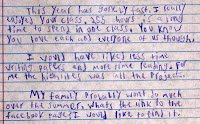 This year has gone by fast. I really
enjoyed your class, 255 hours is a long
time to spend in one class. You know
you love each and everyone of us though.
I would have liked less time
writing notes and more time reading. For
me the highlites was all the projects.
My family probably wont do much
over the summer. Whats the link to the
facebook page, I would like to find it.